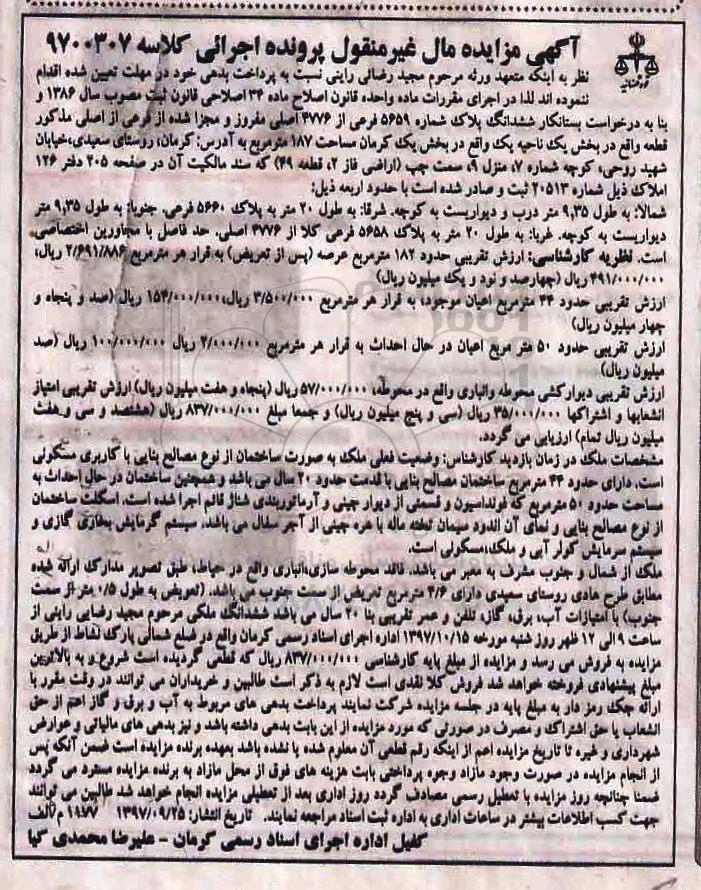 آگهی مزایده مال غیرمنقول پرونده اجرائی کلاسه ۹۷۰۰۳۰۷
نظر به اینکه متعهد ورثه مرحوم مجید رضائی راینی نسبت به پرداخت بدهی خود در مهلت تعیین شده اقدام
ننموده اند لذا در اجرای مقررات ماده واحده قانون اصلاح ماده ۳۴ اصلاحی قانون ثبت مصوب سال ۱۳۸۶ و
بنا به درخواست بستانکار ششدانگ پلاک شماره ۵۶۵۹ فرعی از ۴۷۷۶ اصلی مفروز و مجزا شده از فرعی از اصلی مذکور
قطعه واقع در بخش یک ناحیه یک واقع در بخش یک کرمان مساحت ۱۸۷ مترمربع به آدرس: کرمان، روستای سعیدی،خیابان
شهید روحی، کوچه شماره ۷، منزل ۹، سمت چپ (اراضی فاز ۲، قطعه ۴۹) که سند مالکیت آن در صفحه ۲۰۵ دفتر ۱۲۶
املاک ذیل شماره ۲۰۵۱۳ ثبت و صادر شده است با حدود اربعه ذیل:
شمالا: به طول ۹,۳۵ متر درب و دیواریست به کوچه. شرقا: به طول ۲۰ متر به پلاک ۵۶۶۰ فرعی. جنوبا: به طول ۹,۳۵ متر
دیواریست به کوچه. غربا: به طول ۲۰ متر به پلاک ۵۶۵۸ فرعی کلا از ۴۷۷۶ اصلی. حد فاصل با مجاورین اختصاصی
است. نظریه کارشناسی: ارزش تقریبی حدود ۱۸۲ مترمربع عرصه (پس از تعریض) به قرار هر مترمربع ۲/۶۹۱/۸۸۶ ریال،
۴۹۱/۰۰۰/۰۰۰ ریال (چهارصد و نود و یک میلیون ریال)
ارزش تقریبی حدود ۴۴ مترمربع اعیان موجود، به قرار هر مترمربع ۳/۵۰۰/۰۰۰ ریال، ۱۵۴/۰۰۰/۰۰۰ ریال (صد و پنجاه و
چهار میلیون ریال)
ارزش تقریبی حدود ۵۰ متر مربع اعیان در حال احداث به قرار هر مترمربع ۲/۰۰۰/۰۰۰ ریال ۱۰۰/۰۰۰/۰۰۰ ریال (صد
میلیون ریال)
ارزش تقریبی دیوارکشی محوطه وانباری واقع در محوطه، ۵۷/۰۰۰/۰۰۰ ریال (پنجاه و هفت میلیون ریال) ارزش تقریبی امتیاز
انشعابها و اشتراکها ۳۵/۰۰۰/۰۰۰ ریال (سی و پنج میلیون ریال) و جمعا مبلغ ۸۳۷/۰۰۰/۰۰۰ ریال (هشتصد و سی و هفت
میلیون ریال تمام) ارزیابی می گردد.
مشخصات ملک در زمان بازدید کارشناس: وضعیت فعلی ملک به صورت ساختمان از نوع مصالح بنایی با کاربری مسکونی
است. دارای حدود ۴۴ مترمربع ساختمان مصالح بنایی با قدمت حدود ۲۰ سال می باشد و همچنین ساختمان در حال احداث به
مساحت حدود ۵۰ مترمربع که فونداسیون و قسمتی از دیوار چینی و آرماتوربندی شناژ قائم اجرا شده است. اسکلت ساختمان
از نوع مصالح بنایی و نمای آن اندود سیمان تخته ماله با هره چینی از آجر سفال می باشد. سیستم گرمایش بخاری گازی و
سیستم سرمایش کولر آبی و ملک،مسکونی است.
ملک از شمال و جنوب مشرف به معبر می باشد. فاقد محوطه سازی،انباری واقع در حیاط، طبق تصویر مدارک ارائه شده
مطابق طرح هادی روستای سعیدی دارای ۴/۶ مترمربع تعریض از سمت جنوب می باشد. (تعویض به طول ۰/۵ متر از سمت
جنوب) با امتیازات آب، برق، گاز، تلفن و عمر تقریبی بنا ۲۰ سال می باشد ششدانگ ملکی مرحوم مجید رضایی راینی از
ساعت ۹ الی ۱۲ ظهر روز شنبه مورخه ۱۳۹۷/۱۰/۱۵ اداره اجرای اسناد رسمی کرمان واقع در ضلع شمالی پارک نشاط از طریق
مزایده به فروش می رسد و مزایده از مبلغ پایه کارشناسی ۸۳۷/۰۰۰/۰۰۰ ریال که قطعی گردیده است شروع و به بالاترین
مبلغ پیشنهادی فروخته خواهد شد فروش کلا نقدی است لازم به ذکر است طالبین و خریداران می توانند در وقت مقرر با
ارائه چک رمز دار به مبلغ پایه در جلسه مزایده شرکت نمایند پرداخت بدهی های مربوط به آب و برق و گاز اعم از حق
انشعاب یا حق اشتراک و مصرف در صورتی که مورد مزایده از این بابت بدهی داشته باشد و نیز بدهی های مالیاتی و عوارض
شهرداری و غیره تا تاریخ مزایده اعم از اینکه رقم قطعی آن معلوم شده یا نشده باشد بعهده برنده مزایده است ضمن آنکه پس
از انجام مزایده در صورت وجود مازاد وجوه پرداختی بابت هزینه های فوق از محل مازاد به برنده مزایده مسترد می گردد
ضمنا چنانچه روز مزایده با تعطیل رسمی مصادف گردد روز اداری بعد از تعطیلی مزایده انجام خواهد شد طالبین می توانند
جهت کسب اطلاعات بیشتر در ساعات اداری به اداره ثبت اسناد مراجعه نمایند. تاریخ انتشار: ۱۳۹۷/۰۹/۲۵ ۱۹۷۷ م/الف
کفیل اداره اجرای اسناد رسمی کرمان - علیرضا محمدی کیا